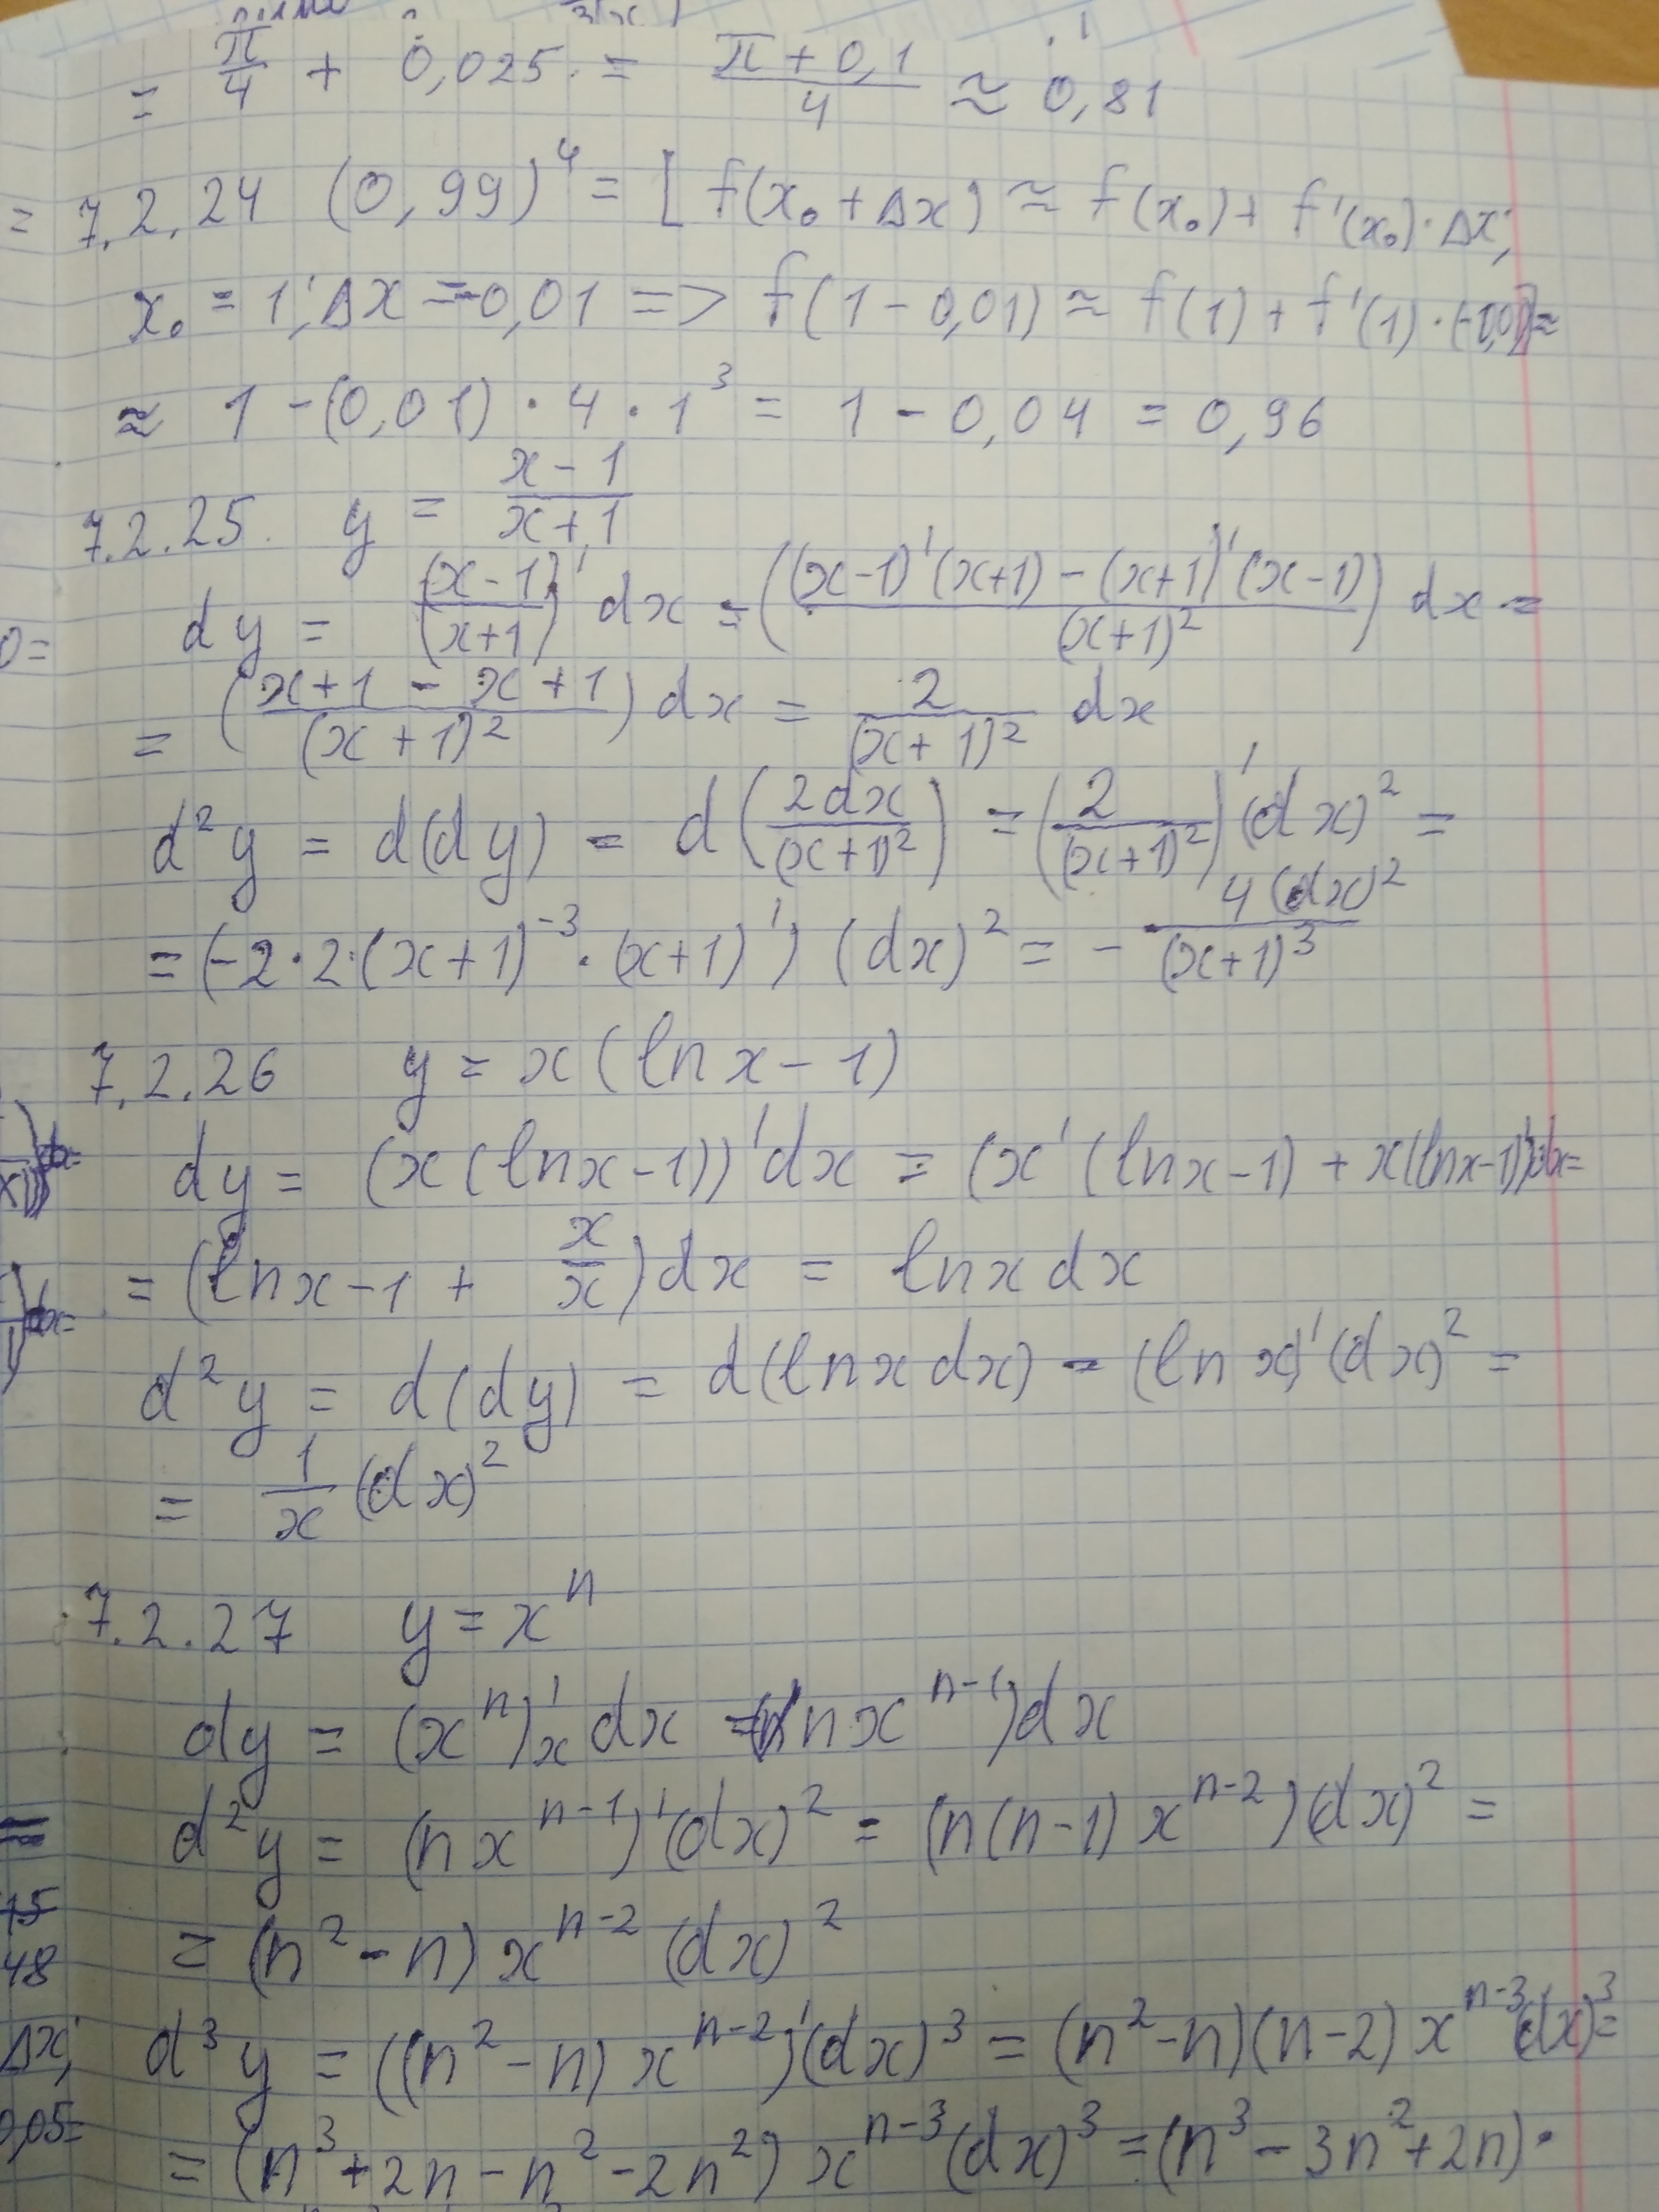 = π/4 + 0,025 = (π + 0,1)/4 ≈ 0,81
= 7.2.24 (0,99)⁴ = [ f(x₀ + Δx) ≈ f(x₀) + f'(x₀)·Δx;
x₀ = 1; Δx = -0,01 => f(1 - 0,01) ≈ f(1) + f'(1)·(-0,01)] ≈
≈ 1 - (0,01) · 4 · 1³ = 1 - 0,04 = 0,96
7.2.25. y = (x - 1)/(x + 1)
dy = ((x - 1)/(x+1))' dx = (((x-1)'(x+1) - (x+1)'(x-1))/(x+1)²) dx =
0=
= ((x+1 - x + 1)/(x + 1)²) dx = 2/(x+1)² dx
d²y = d(dy) = d(2dx/(x+1)²) = (2/(x+1)²)' (dx)² =
= (-2·2·(x+1)⁻³·(x+1)') (dx)² = - 4(dx)²/(x+1)³
7.2.26 y = x(ln x - 1)
dy = (x(ln x - 1))' dx = (x'(ln x - 1) + x(ln x - 1)')dx =
= (ln x - 1 + x/x) dx = ln x dx
d²y = d(dy) = d(ln x dx) = (ln x)'(dx)² =
= 1/x (dx)²
7.2.27 y = xⁿ
dy = (xⁿ)'ₓ dx = (n xⁿ⁻¹) dx
d²y = (n xⁿ⁻¹)'(dx)² = (n(n-1) xⁿ⁻²)(dx)² =
=
15
= (n² - n) xⁿ⁻² (dx)²
48
Δx;
d³y = ((n² - n) xⁿ⁻²)'(dx)³ = (n² - n)(n-2) xⁿ⁻³(dx)³ =
0,05=
= (n³ + 2n - n² - 2n²) xⁿ⁻³ (dx)³ = (n³ - 3n² + 2n) ·